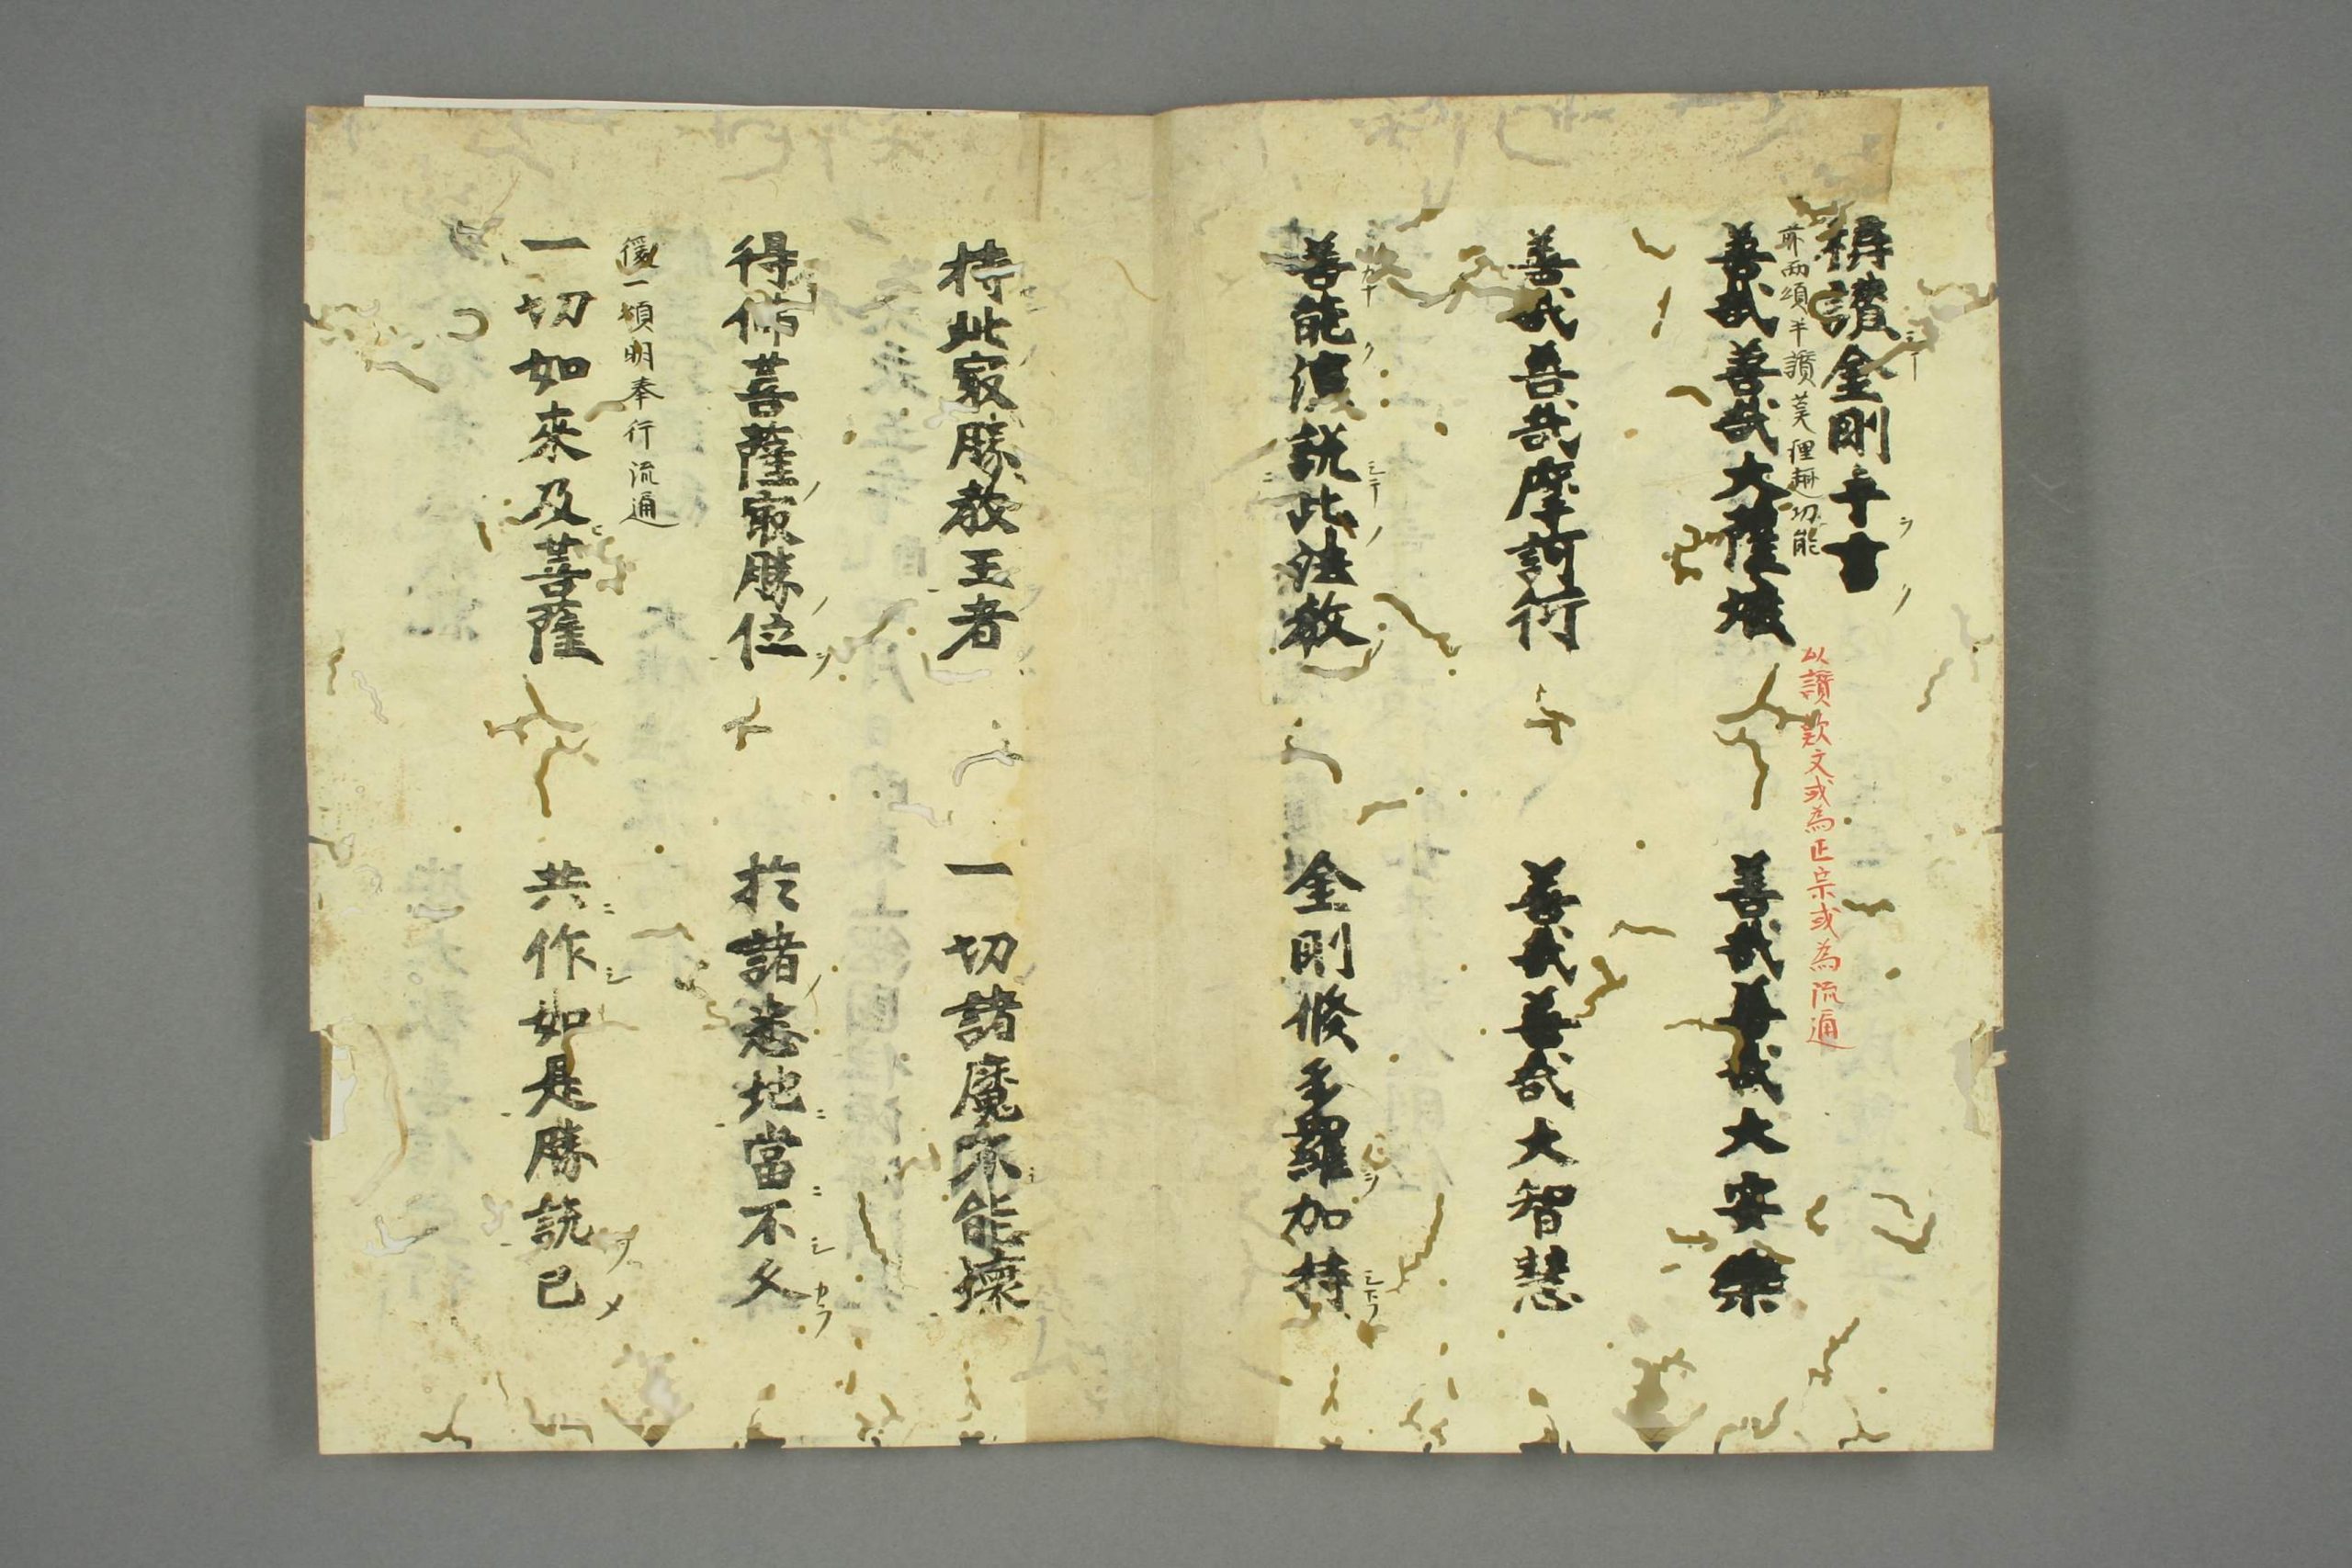 稱讃金剛手言
前兩頌半讃莫理趣功能
以讃歎文或為正宗或為流通
善哉善哉大薩埵　善哉善哉大安樂
善哉善哉摩訶衍　善哉善哉大智慧
善能演說此法教　金剛脩多羅加持
持此冣勝教王者　一切諸魔不能壞
得佛菩薩冣勝位　於諸悉地當不久
後一頌明奉行流通
一切如來及菩薩　共作如是勝說已